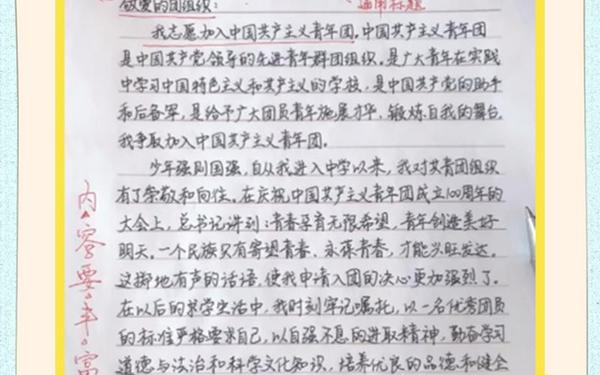 敬爱的团组织：
通用标题
我志愿加入中国共产主义青年团。中国共产主义青年团
是中国共产党领导的先进青年群团组织。是广大青年在实践
中学习中国特色主义和共产主义的学校，是中国共产党的助手
和后备军，是给予广大团员青年施展才华，锻炼自我的舞台。
我争取加入中国共产主义青年团。
少年强则国强，自从我进入中学以来，我对共青团组织
有了崇敬和向往。在庆祝中国共产主义青年团成立100周年的
大会上，总书记讲到：青春孕育无限希望，青年创造美好
明天。一个民族只有寄望青春、永葆青春，才能兴旺发达。
这掷地有声的话语，使我申请入团的决心更加强烈了。
在以后的求学生活中，我时刻牢记嘱托，以一名优秀团员
的标准严格要求自己，以自强不息的进取精神，勤奋学习
道德与法治和科学文化知识，培养优良的品德和健全
内容要丰富